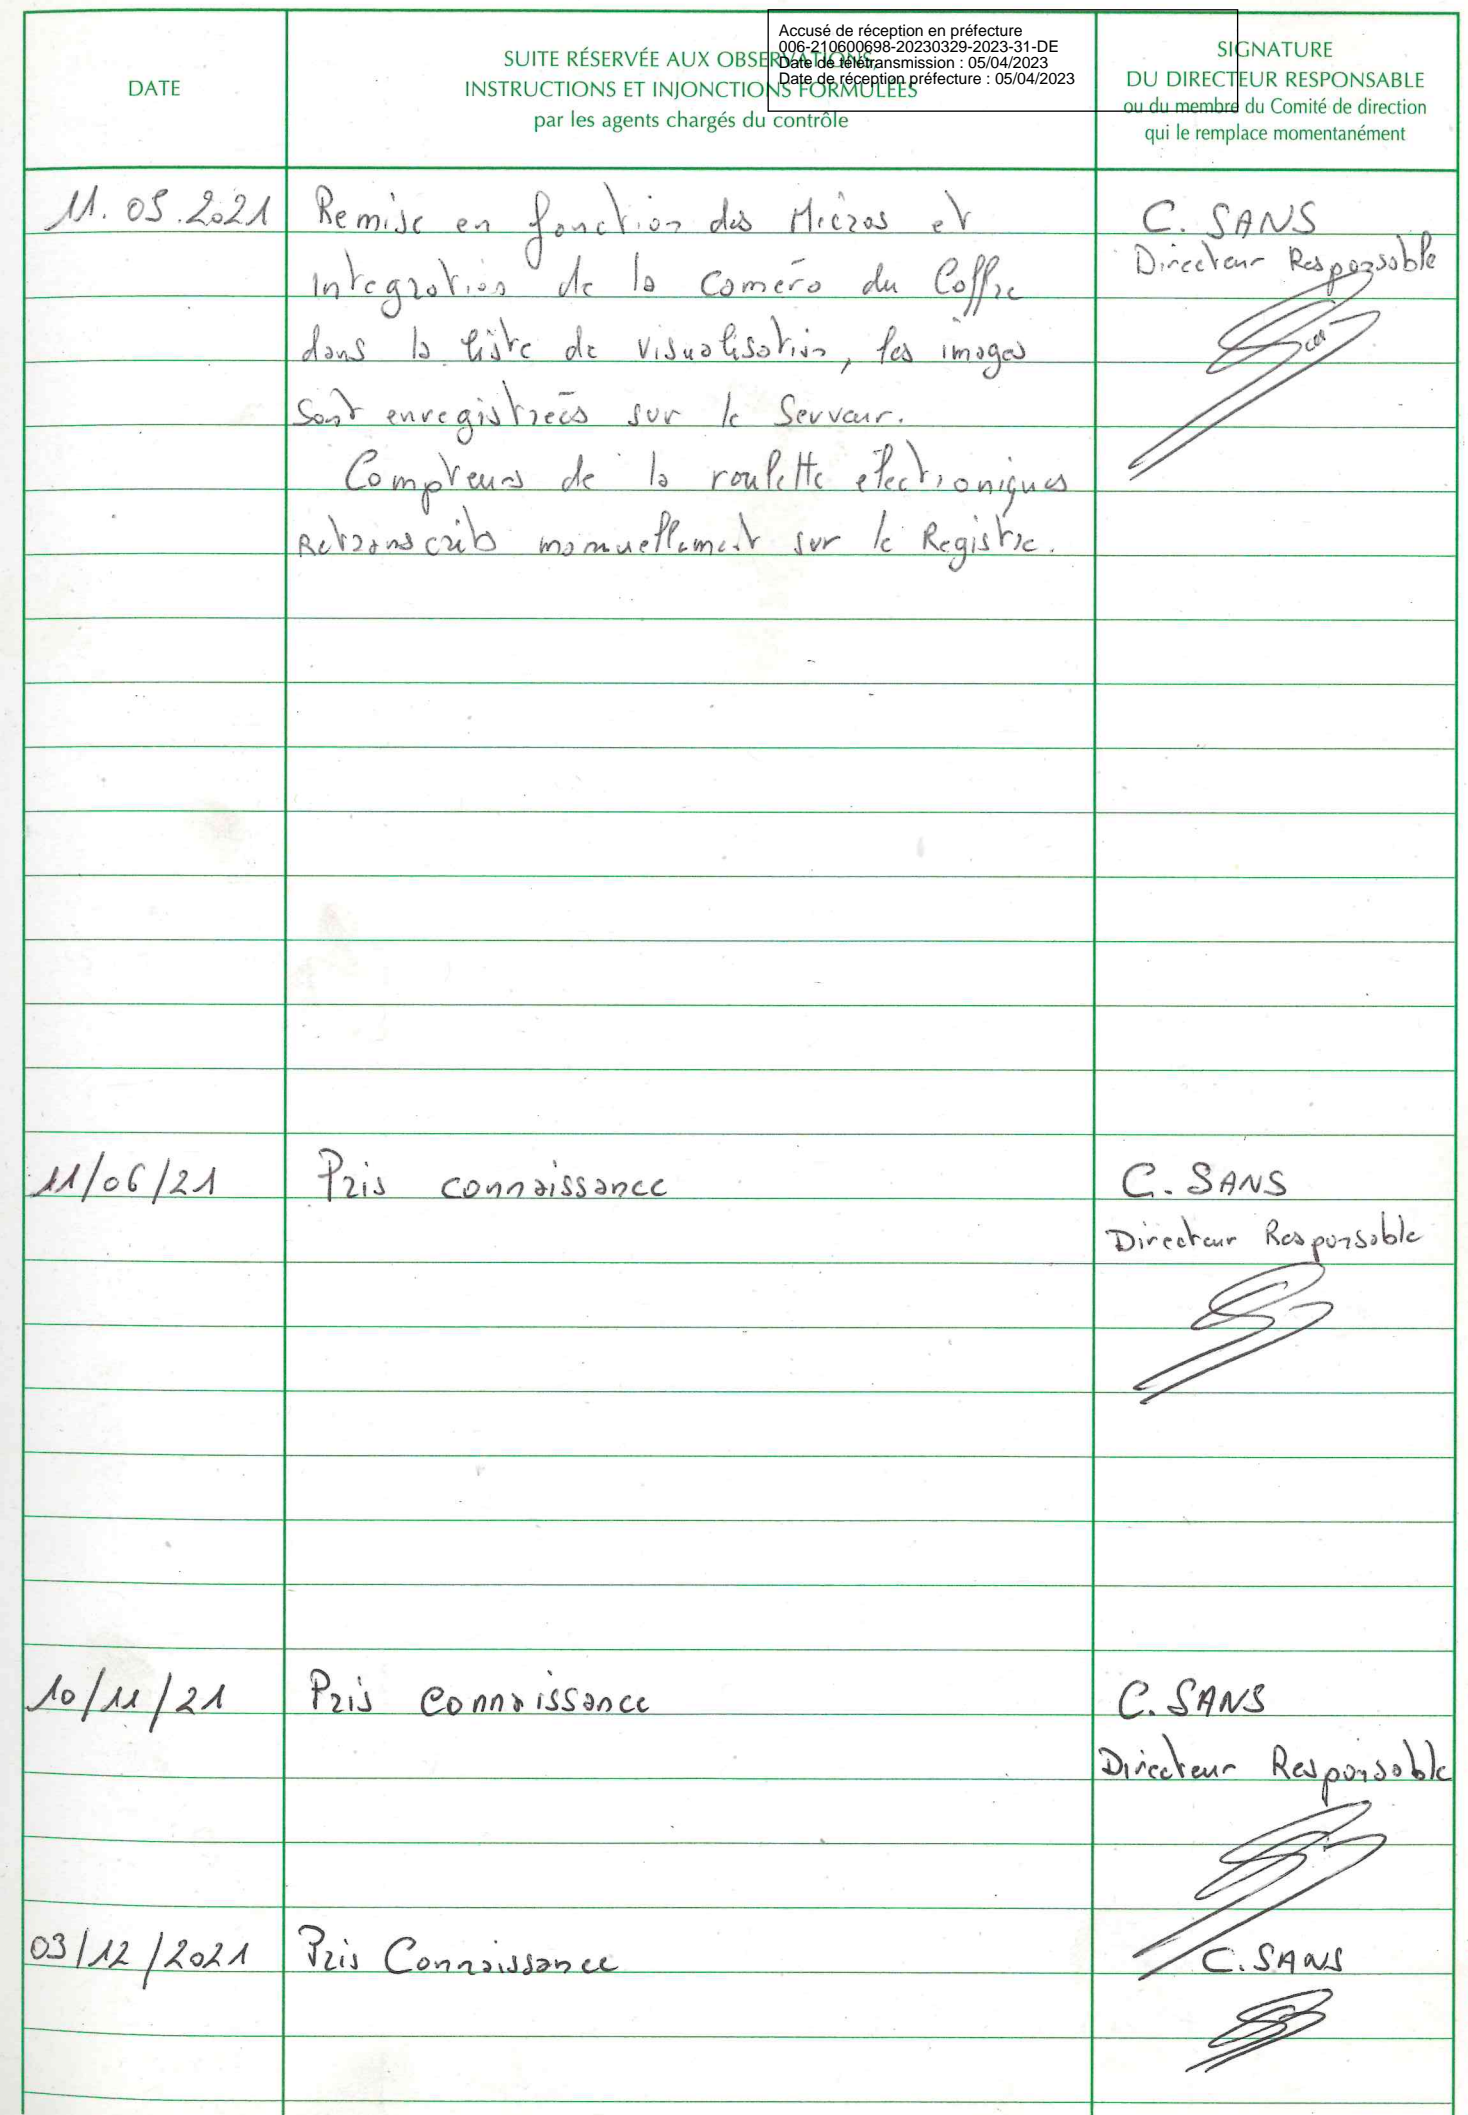 Accusé de réception en préfecture
006-210600698-20230329-2023-31-DE
Date de télétransmission : 05/04/2023
Date de réception préfecture : 05/04/2023
DATE
SUITE RÉSERVÉE AUX OBSERVATIONS,
INSTRUCTIONS ET INJONCTIONS FORMULÉES
par les agents chargés du contrôle
SIGNATURE
DU DIRECTEUR RESPONSABLE
ou du membre du Comité de direction
qui le remplace momentanément
11.05.2021 Remise en fonction des Micros et C. SANS
Directeur Responsable
integration de la caméra du Coffre
dans la liste de visualisation, les images
sont enregistrées sur le Serveur.
Compteurs de la roulette électroniques
Retranscrits manuellement sur le Registre.
11/06/21 Pris connaissance C. SANS
Directeur Responsable
10/11/21 Pris connaissance C. SANS
Directeur Responsable
03/12/2021 Pris Connaissance C. SANS